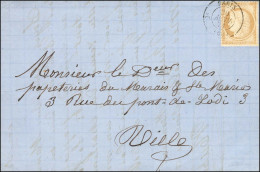 Monsieur le Deur Des
papeteries du Marais & Ste Marie
3 Rue du pont-de-Lodi 3
Ville